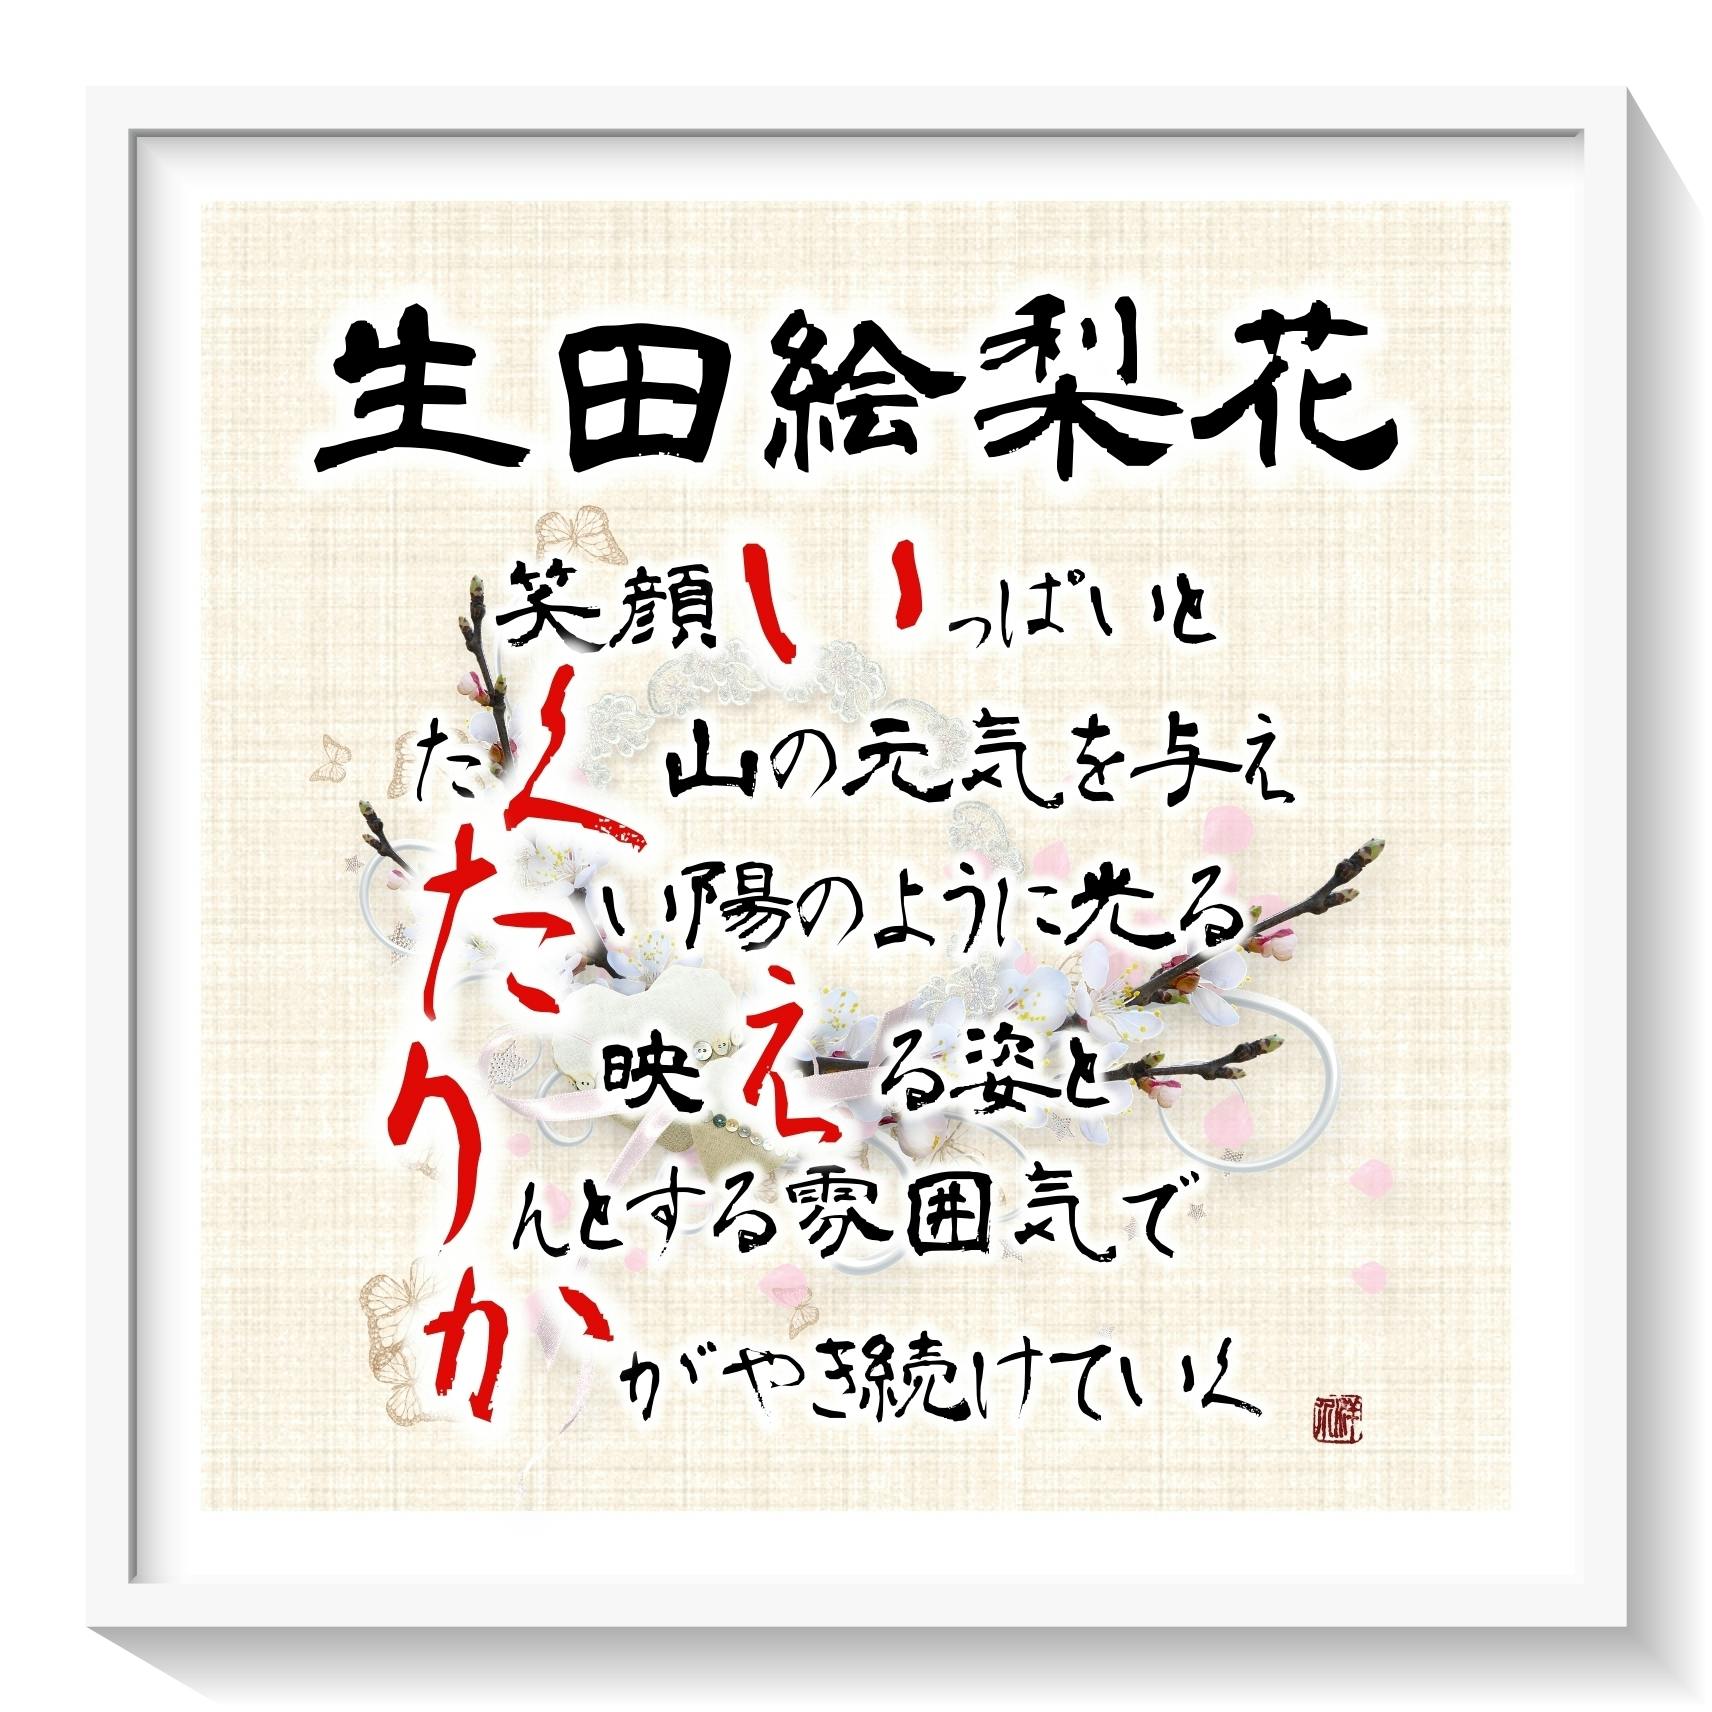 生田絵梨花
笑顔いっぱいと
たく山の元気を与え
たい陽のように光る
映える姿と
りんとする雰囲気で
かがやき続けていく